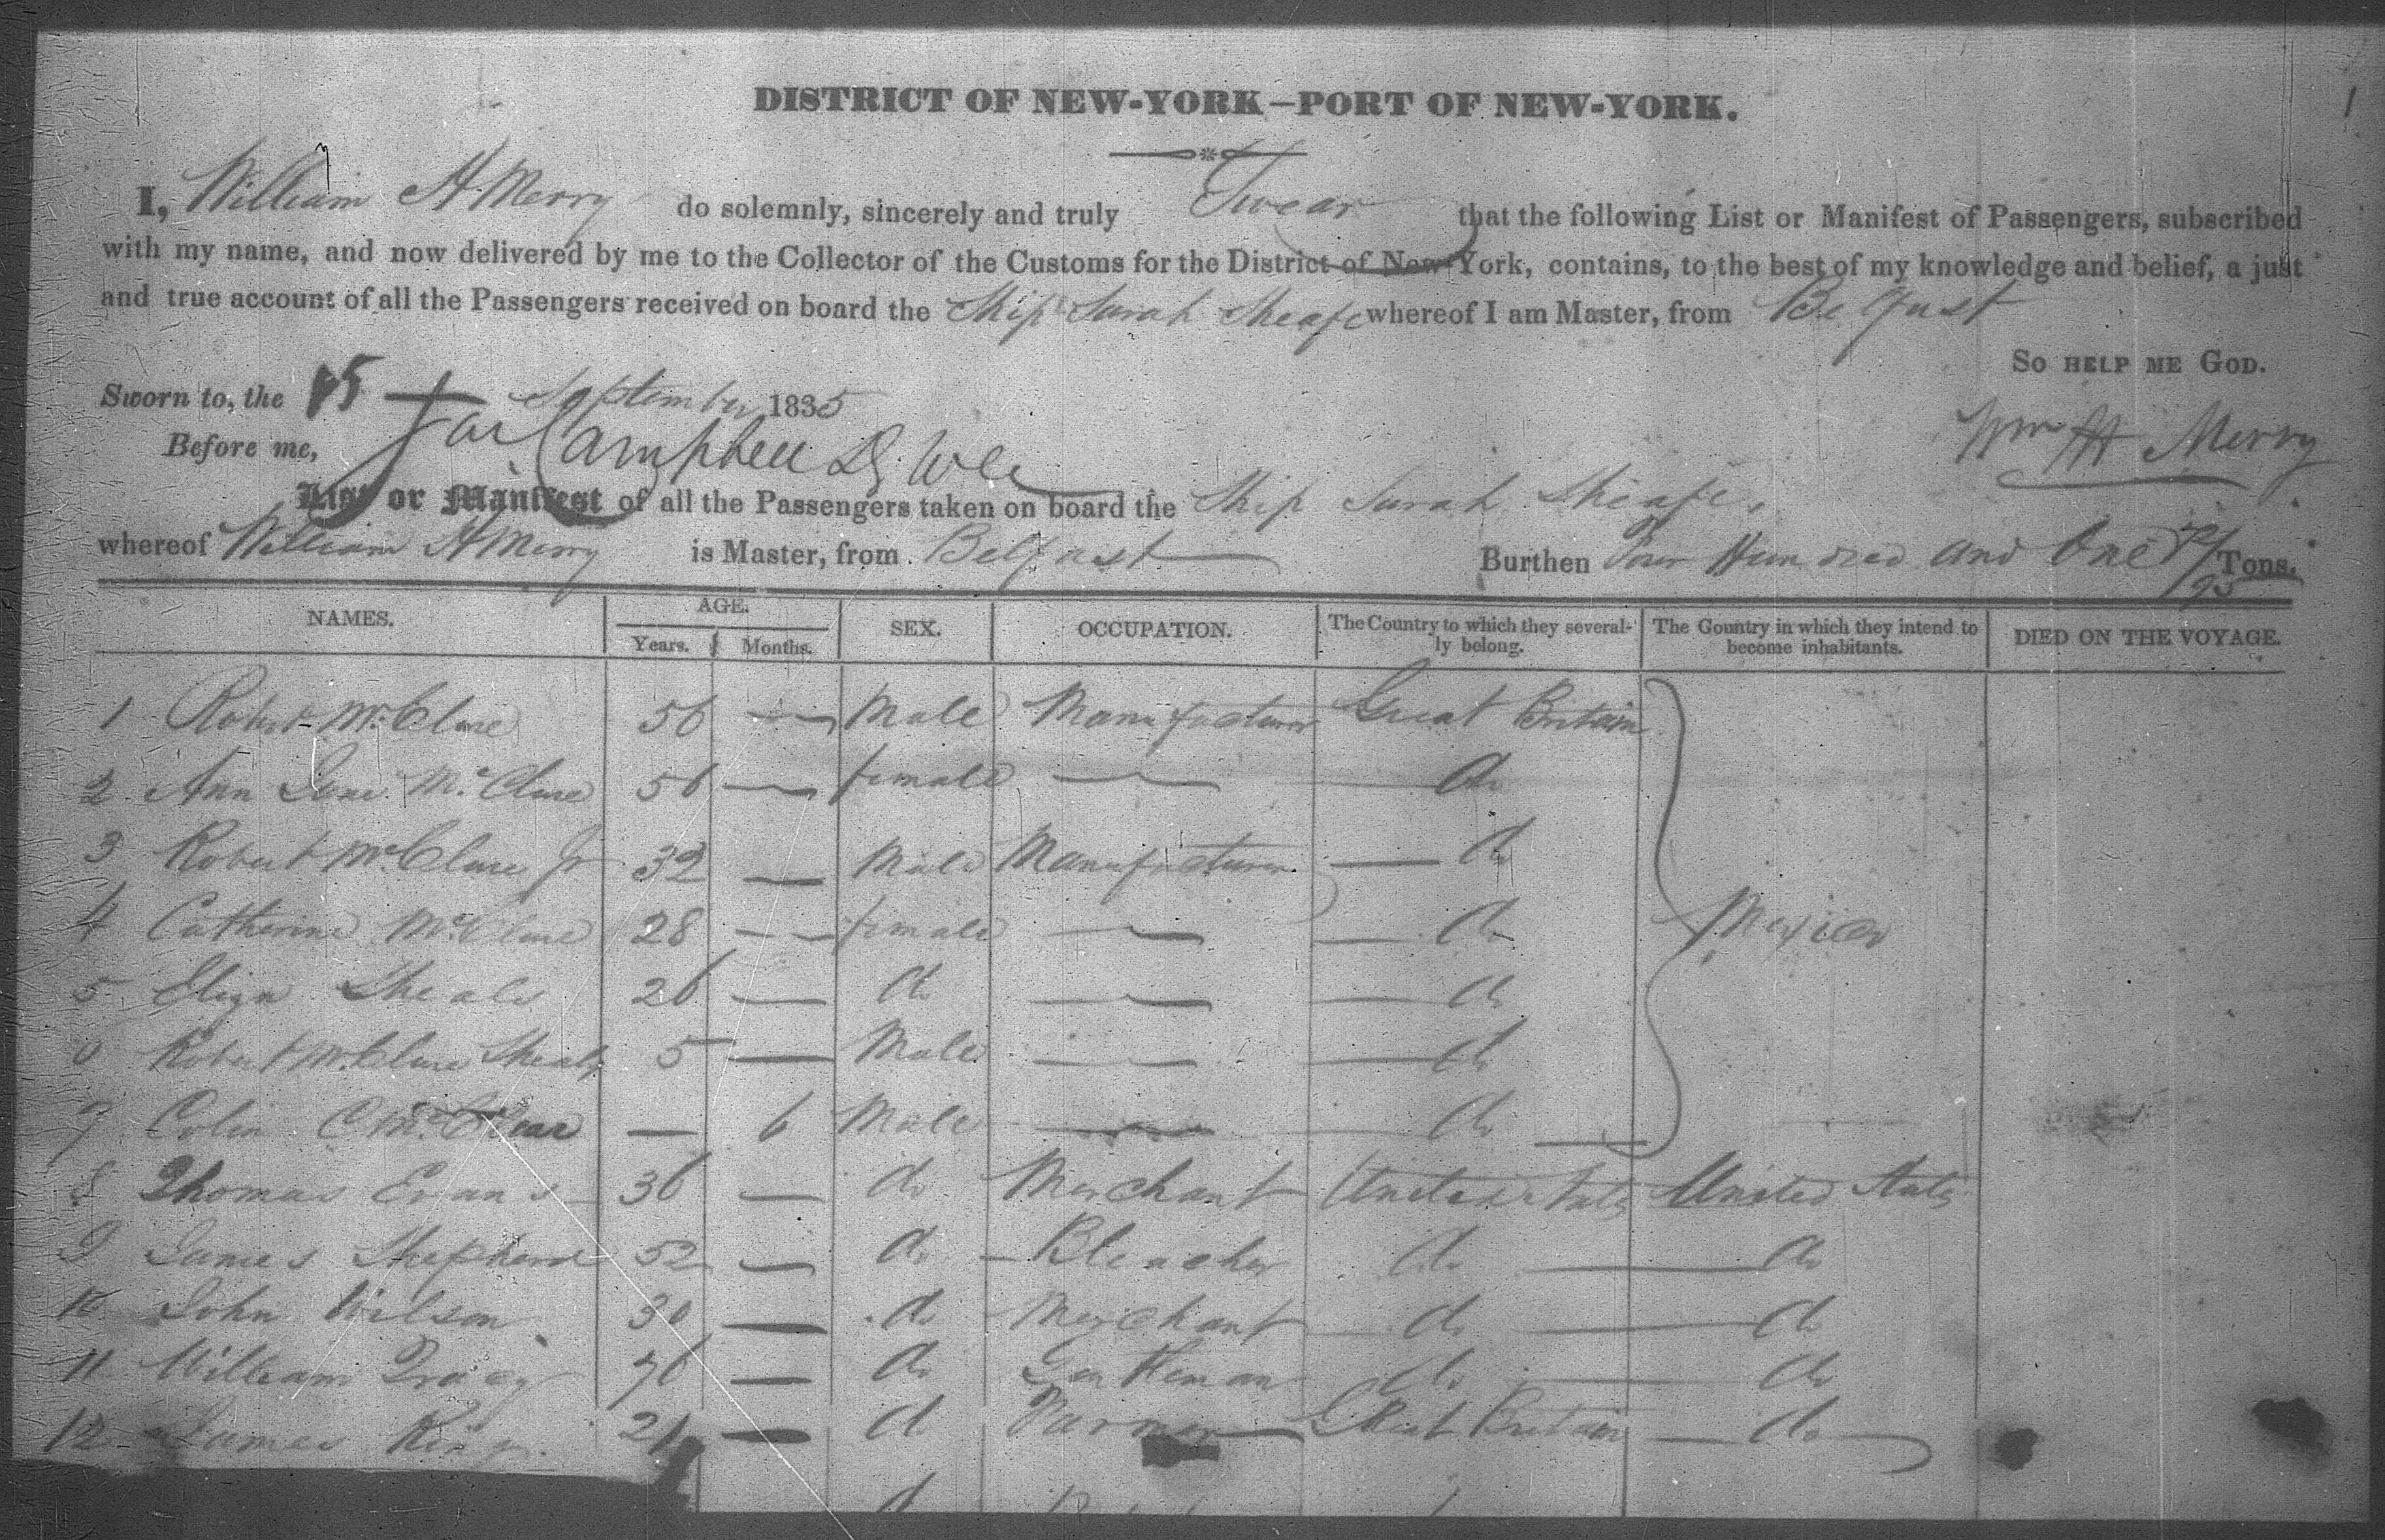 1
DISTRICT OF NEW-YORK—PORT OF NEW-YORK.
I, William H Merry do solemnly, sincerely and truly Swear that the following List or Manifest of Passengers, subscribed
with my name, and now delivered by me to the Collector of the Customs for the District of New York, contains, to the best of my knowledge and belief, a just
and true account of all the Passengers received on board the Ship Sarah Sheafe whereof I am Master, from Belfast
So help me God.
Sworn to, the 15 September 1835
Wm H Merry
Before me, Campbell
List or Manifest of all the Passengers taken on board the Ship Sarah Sheafe.
whereof William H Merry is Master, from Belfast Burthen Four Hundred and One /95 Tons.
NAMES. AGE. SEX. OCCUPATION. The Country to which they several- The Country in which they intend to DIED ON THE VOYAGE.
Years. Months. ly belong. become inhabitants.
1 Robert McClure 56 — Male Manufacturer Great Britain
2 Ann Jane McClure 56 — female — do
3 Robert McClure Jr 32 — Male Manufacturer — do
4 Catherine McClure 28 — female — — do Mexico
5 Eliza Sheals 26 — do — — do
6 Robert McClure Sheals 5 — Male — — do
7 Colin C McClure — 6 Male — — do
8 Thomas Evans 36 — do Merchant United States United States
9 James Shepherd 52 — do Bleacher do — do
10 John Wilson 30 — do Merchant do — do
11 William 76 — do Gentleman do — do
12 James King 21 — do Farmer Great Britain — do
do